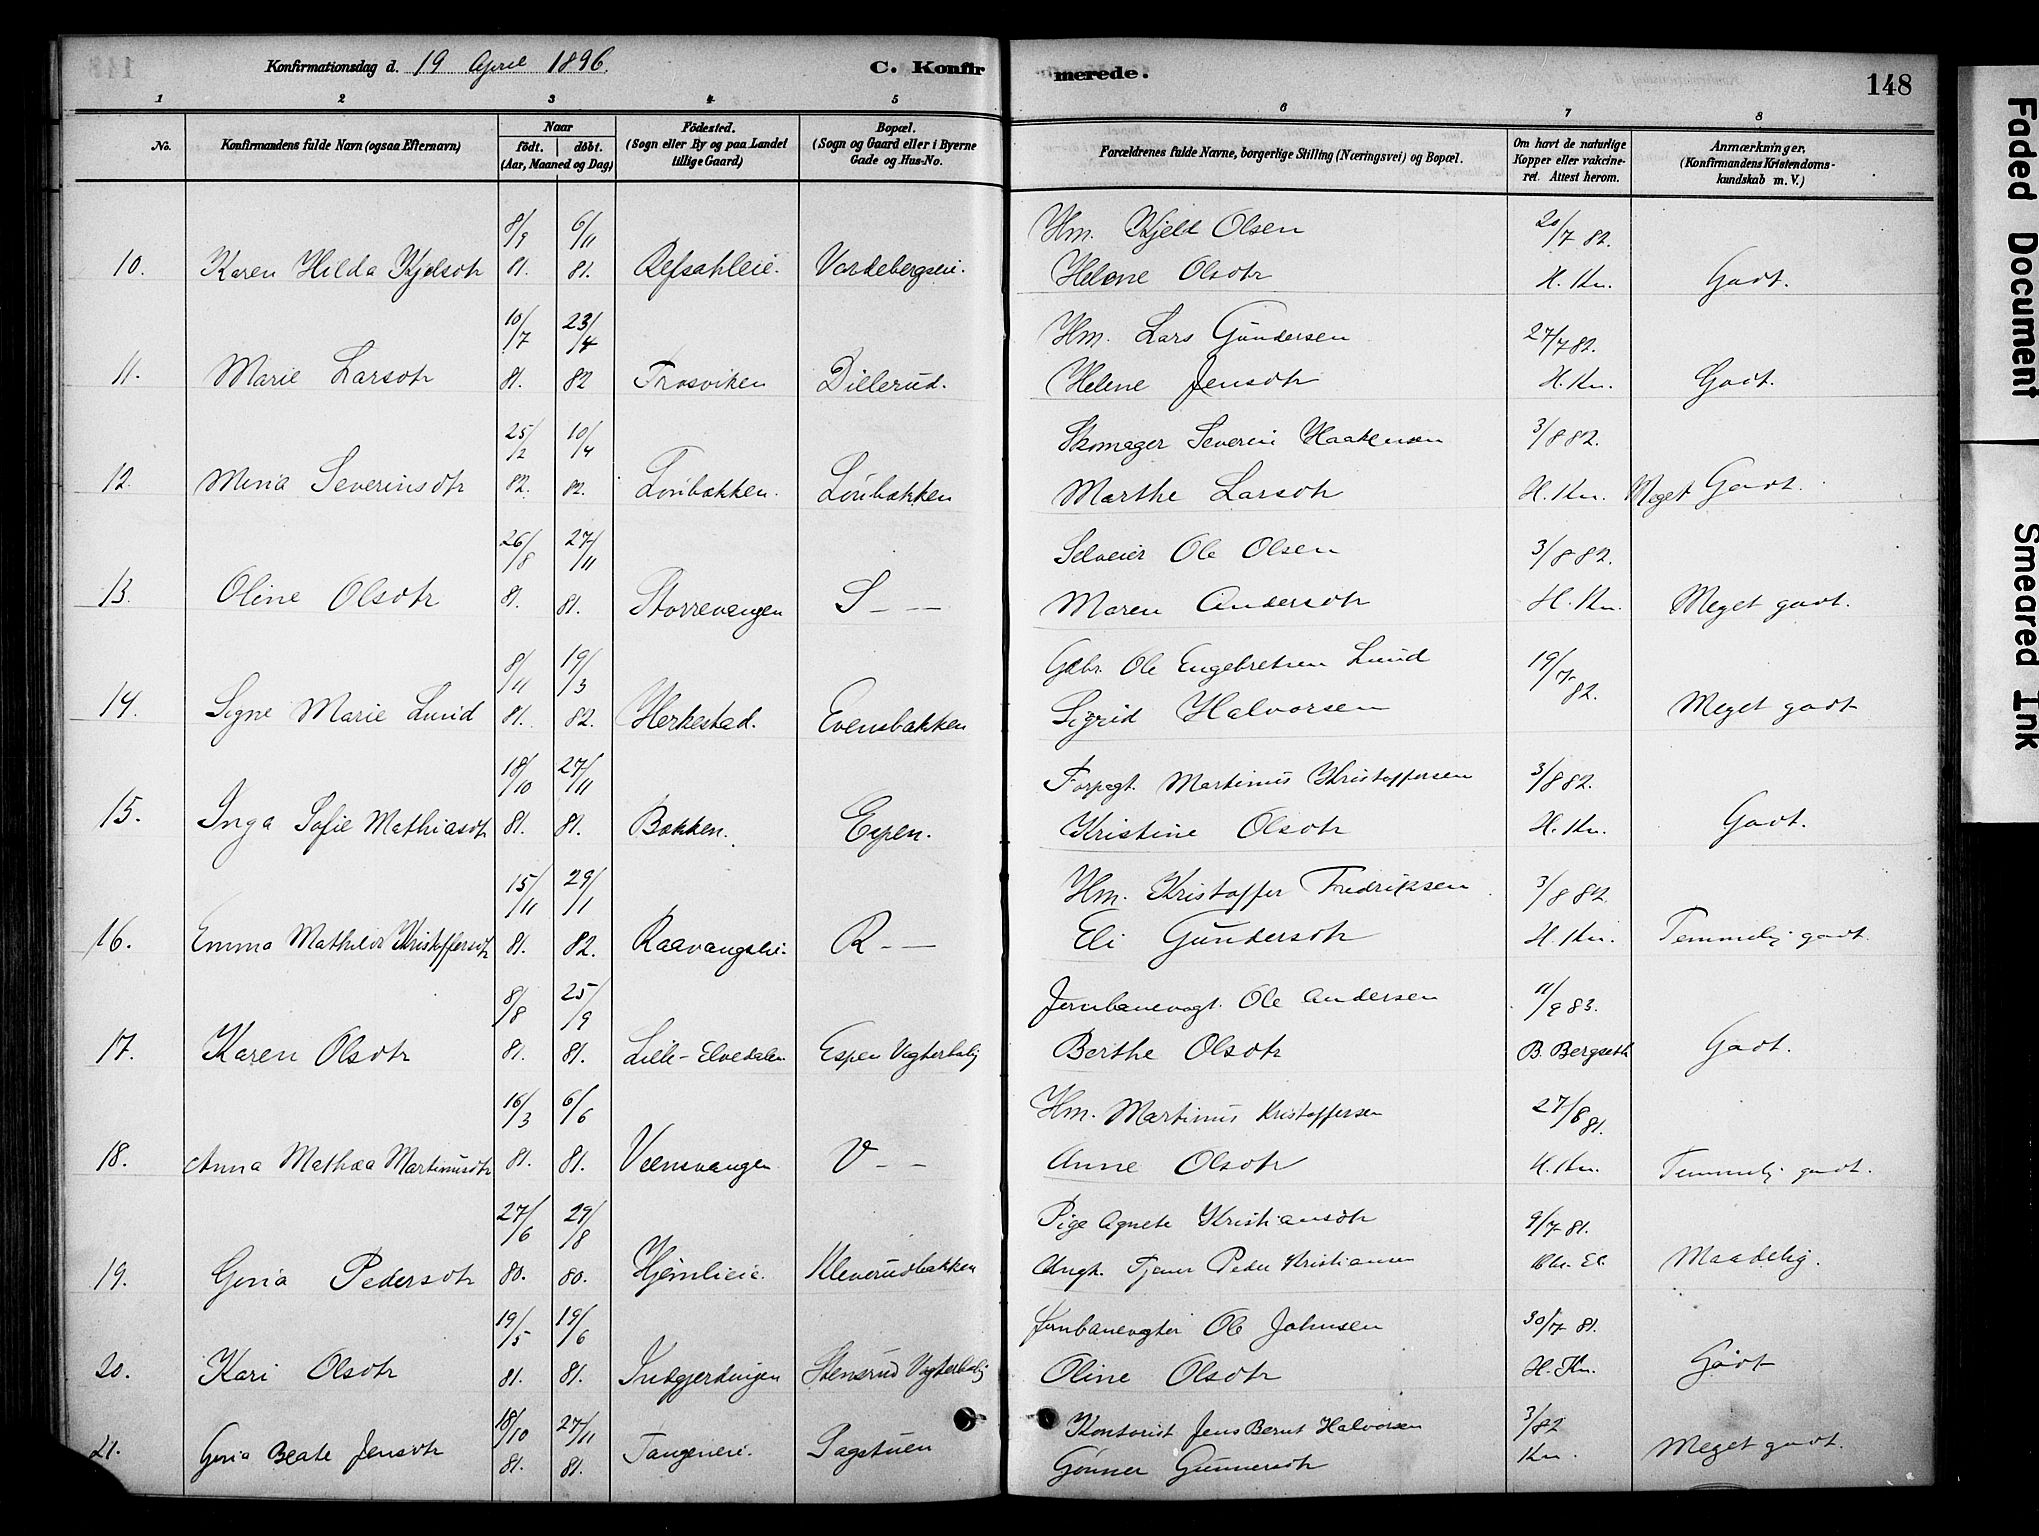 Konfirmationsdag d. 19 April 1896.
C. Konfirmerede.
148
1 2 3 4 5 6 7 8
No.
Konfirmandens fulde Navn (ogsaa Efternavn)
Naar
födt. döbt.
(Aar, Maaned og Dag)
Födested.
(Sogn eller By og paa Landet
tillige Gaard)
Bopæl.
(Sogn og Gaard eller i Byerne
Gade og Hus-No.
Forældrenes fulde Navne, borgerlige Stilling (Næringsvei) og Bopæl.
Om havt de naturlige
Kopper eller vakcine-
ret. Attest herom.
Anmærkninger.
(Konfirmandens Kristendoms-
kundskab m. V.)
8/9 6/11 Hm. Kjeld Olsen 20/7 82.
10. Karen Hilda Kjelsdtr 81. 81. Refsahleie. Vardebergseie. Helene Olsdtr H. Kn. Godt.
10/7 23/4 Hm. Lars Gundersen 27/7 82.
11. Marie Larsdtr 81. 82 Trosviken Dillerud. Helene Jensdtr H. Kn. Godt.
25/2 10/4 Skomager Severin Haakensen 3/8 82.
12. Mina Severinsdtr 82. 82. Lönbækken. Lönbækken Marthe Larsdtr H. Kn. Meget Godt.
26/8 27/11 Selveier Ole Olsen 3/8 82.
13. Oline Olsdtr 81. 81. Storrevangen S - - Maren Andersdtr H. Kn. Meget godt.
8/11 19/3 Gbr. Ole Engebretsen Lund 19/7 82.
14. Signe Marie Lund 81. 82. Herkestad. Evensbakken Sigrid Halvorsen Meget godt
18/10 27/11 Forpagt. Martinus Kristoffersen 3/8 82.
15. Inga Sofie Mathiasdtr 81. 81. Bakken. Espen. Kristine Olsdtr H. Kn. Godt.
15/11 29/1 Hm. Kristoffer Fredriksen 3/8 82.
16. Emma Mathilde Kristoffersdtr 81. 82. Raavangseie. R - - Eli Gundersdtr H. Kn. Temmelig godt.
8/8 25/9 Jernbanevogt. Ole Andersen 11/9 83.
17. Karen Olsdtr 81. 81. Lille-Elvedalen Espen Vogterbolig Berthe Olsdtr B. Bergseth Godt.
16/3 6/6 Hm. Martinus Kristoffersen 27/8 81.
18. Anna Mathea Martinusdtr 81. 81. Veensvangen V - - Anne Olsdtr H. Kn. Temmelig godt.
27/6 29/8 Pige Agnete Kristiansdtr 9/7 81.
19. Gina Pedersdtr 80. 80. Hjemlieie. Kleverudbakken Ungk. Tjener Peder Kristiansen Maadelig.
19/5 19/6 Jernbanevogter Ole Johnsen 30/7 81.
20. Kari Olsdtr 81. 81. Indgjerdingen Stensrud Vogterbolig Oline Olsdtr H. Kn. Godt
18/10 27/11 Kontorist Jens Bernt Halvorsen 3/82
21. Gina Beate Jensdtr 81. 81. Tangeneie. Sagstuen Gönner Gunnersdtr Kn. Meget godt.
Faded Document
Smeared Ink